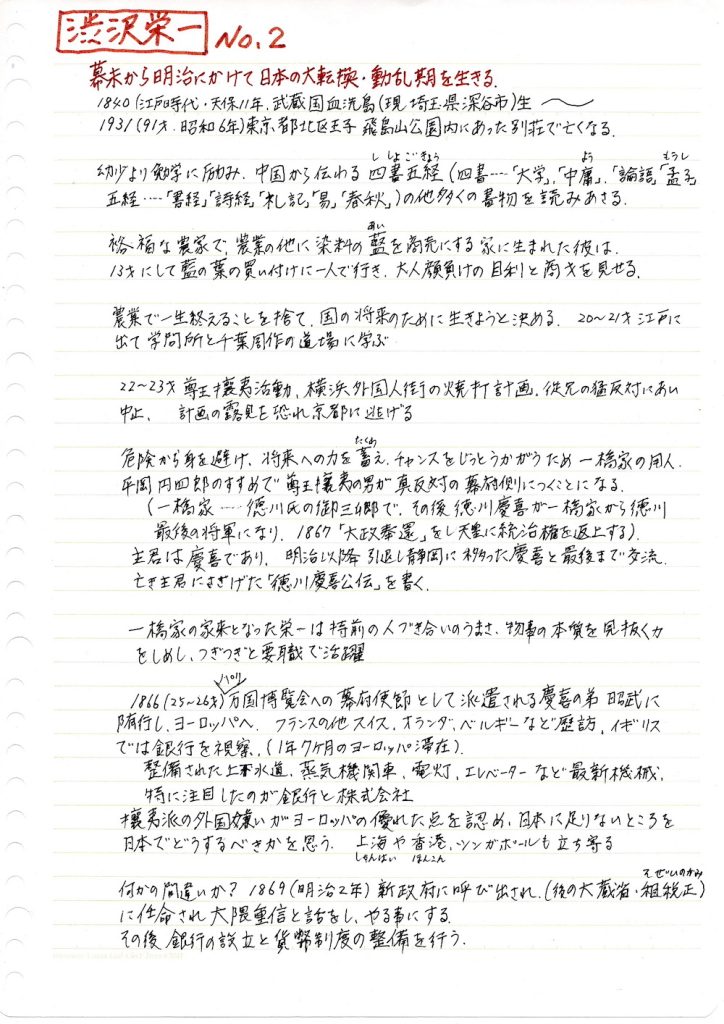 渋沢栄一 No.2
幕末から明治にかけて日本の大転換・動乱期を生きる.
1840(江戸時代・天保11年. 武蔵国血洗島(現 埼玉県深谷市)生 〜
1931(91才. 昭和6年)東京都北区王子 飛鳥山公園内にあった別荘で亡くなる.
ししょごきょう よう もうし
幼少より勉学に励み. 中国から伝わる 四書五経 (四書…「大学」,「中庸」,「論語」「孟子」
五経…「書経」「詩経」「礼記」「易」「春秋」)の他多くの書物を読みあさる.
あい
裕福な農家で, 農業の他に染料の藍を商売にする家に生まれた彼は.
13才にして藍の葉の買い付けに一人で行き. 大人顔負けの目利と商才を見せる.
農業で一生終えることを捨て. 国の将来のために生きようと決める. 20〜21才 江戸に
出て学問所と千葉周作の道場に学ぶ
22〜23才 尊王攘夷活動, 横浜外国人街の焼打計画. 従兄の猛反対にあい
中止. 計画の露見を恐れ京都に逃げる
たくわ
危険から身を避け, 将来への力を蓄え. チャンスをじっとうかがうため 一橋家の用人.
平岡円四郎のすすめで 尊王攘夷の男が真反対の幕府側につくことになる.
(一橋家 … 徳川氏の御三卿で, その後 徳川慶喜が一橋家から徳川
最後の将軍になり. 1867「大政奉還」をし天皇に統治権を返上する).
主君は慶喜であり. 明治以降 引退し静岡に移った慶喜と最後まで交流.
亡き主君にささげた「徳川慶喜公伝」を書く.
一橋家の家来となった栄一は持前の人づき合いのうまさ, 物事の本質を見抜く力
をしめし, つぎつぎと要職で活躍
パリ
1866(25〜26才)万国博覧会への幕府使節として派遣される慶喜の弟 昭武に
随行し, ヨーロッパへ. フランスの他スイス, オランダ, ベルギーなど歴訪. イギリス
では銀行を視察. (1年7ヶ月のヨーロッパ滞在).
整備された上下水道, 蒸気機関車, 電灯, エレベーターなど最新機械,
特に注目したのが銀行と株式会社
攘夷派の外国嫌いがヨーロッパの優れた点を認め, 日本に足りないところを
日本でどうするべきかを思う. 上海や香港, シンガポールも立ち寄る
しゃんはい ほんこん
そぜいのかみ
何かの間違いか? 1869(明治2年)新政府に呼び出され. (後の大蔵省・租税正)
に任命され大隈重信と話をし, やる事にする.
その後 銀行の設立と貨幣制度の整備を行う.